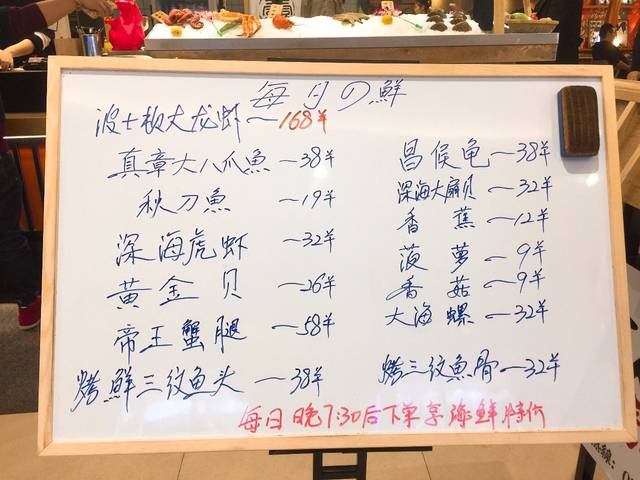 每日の鮮
波士板大龙虾—168半
真章大八爪魚—38半
秋刀魚—19半
深海虎虾—32半
黄金贝—26半
帝王蟹腿—58半
烤鮮三纹鱼头—38半
昌侯龟—38半
深海大扇贝—32半
香蕉—12半
菠萝—9半
香菇—9半
大海螺—32半
烤三纹魚骨—32半
每日晚7:30后下单享海鲜特价